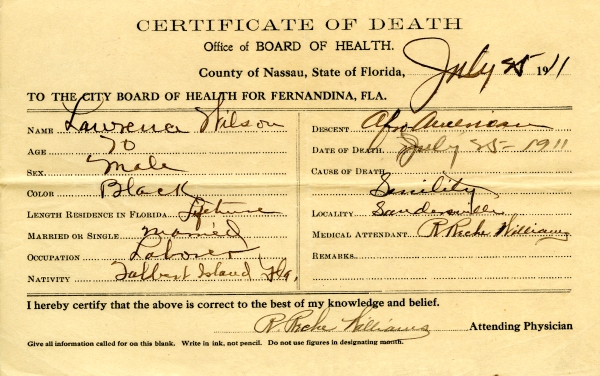 CERTIFICATE OF DEATH
Office of BOARD OF HEALTH.
County of Nassau, State of Florida, July 25 1911
TO THE CITY BOARD OF HEALTH FOR FERNANDINA, FLA.
NAME Lawrence Wilson
AGE 70
SEX Male
COLOR Black
LENGTH RESIDENCE IN FLORIDA Lifetime
MARRIED OR SINGLE Married
OCCUPATION Laborer
NATIVITY Talbert Island Fla.
DESCENT Afro American
DATE OF DEATH July 25 - 1911
CAUSE OF DEATH
Senility
LOCALITY
MEDICAL ATTENDANT R. Williams
REMARKS
I hereby certify that the above is correct to the best of my knowledge and belief.
R. Williams Attending Physician
Give all information called for on this blank. Write in ink, not pencil. Do not use figures in designating month.